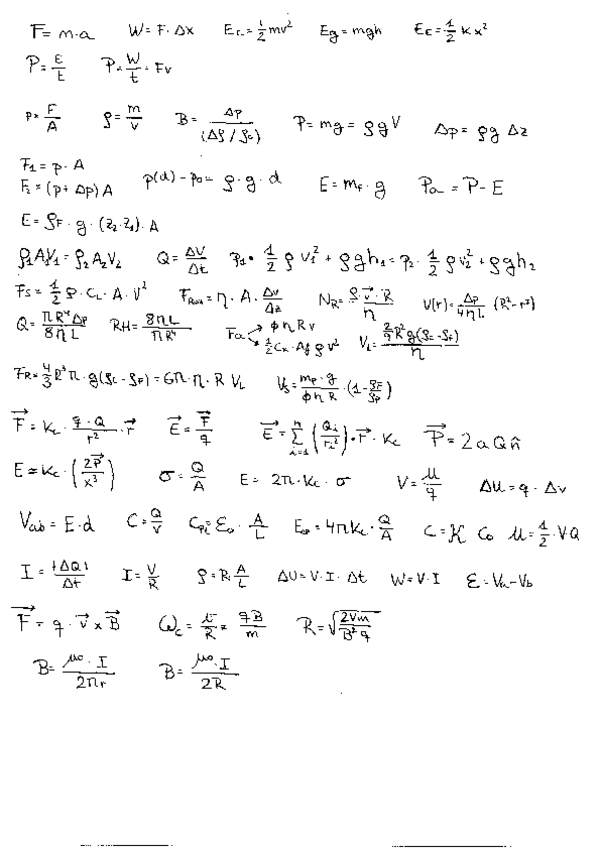 F = m·a   W = F·Δx   Ec = 1/2 mv²   Eg = mgh   EE = 1/2 Kx²
P = E/t   P = W/t = Fv
P = F/A   ρ = m/v   B = Δp/(Δρ/ρc)   P = mg = ρgV   Δp = ρg Δz
F1 = p·A
F2 = (p+Δp)A   p(d) - p0 = ρ·g·d   E = mf·g   Pa = P - E
E = ρF·g·(z2·z1)·A
ρ1A1V1 = ρ2A2V2   Q = ΔV/Δt   p1·1/2 ρv1² + ρgh1 = p2·1/2 ρv2² + ρgh2
Fs = 1/2 ρ·CL·A·V²   η·A·Δv/Δz   NR = ρ·v⃗·R/η   V(r) = Δp/4ηL (R²-r²)
Q = πR⁴Δp/8ηL   RH = 8ηL/πR⁴   Fa < φηRv   1/2 Cx·Af ρv²   VL = 2/9 R²g(ρc-ρF)/η
FR = 4/3 R³π·g(ρc-ρF) = 6π·η·R VL   Vs = mp·g/φηR·(1-ρF/ρp)
F⃗ = Kc·q·Q/r²·r⃗   E⃗ = F⃗/q   E⃗ = Σ i=1 n (Qi/ri²)·r⃗·Kc   P⃗ = 2aQn̂
E = Kc·(2P⃗/x³)   σ = Q/A   E = 2π·Kc·σ   V = μ/q   Δμ = q·Δv
Vab = E·d   C = Q/v   Cpl = ε0·A/L   Eop = 4πKc·Q/A   C = K C0   μ = 1/2·VQ
I = |ΔQ|/Δt   I = V/R   ρ = R·A/L   ΔU = V·I·Δt   W = V·I   ε = Va-Vb
F⃗ = q·v⃗×B⃗   ωc = v/R = qB/m   R = √(2Vm/B²q)
B = μ0·I/2πr   B = μ0·I/2R